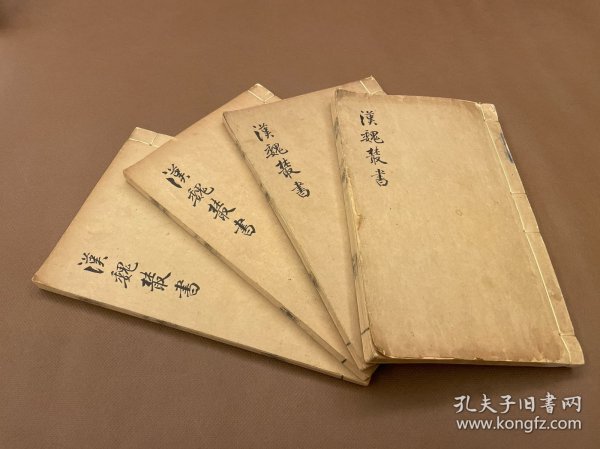 漢魏叢書
漢魏叢書
漢魏叢書
漢魏叢書
孔夫子旧书网
www.kongfz.com